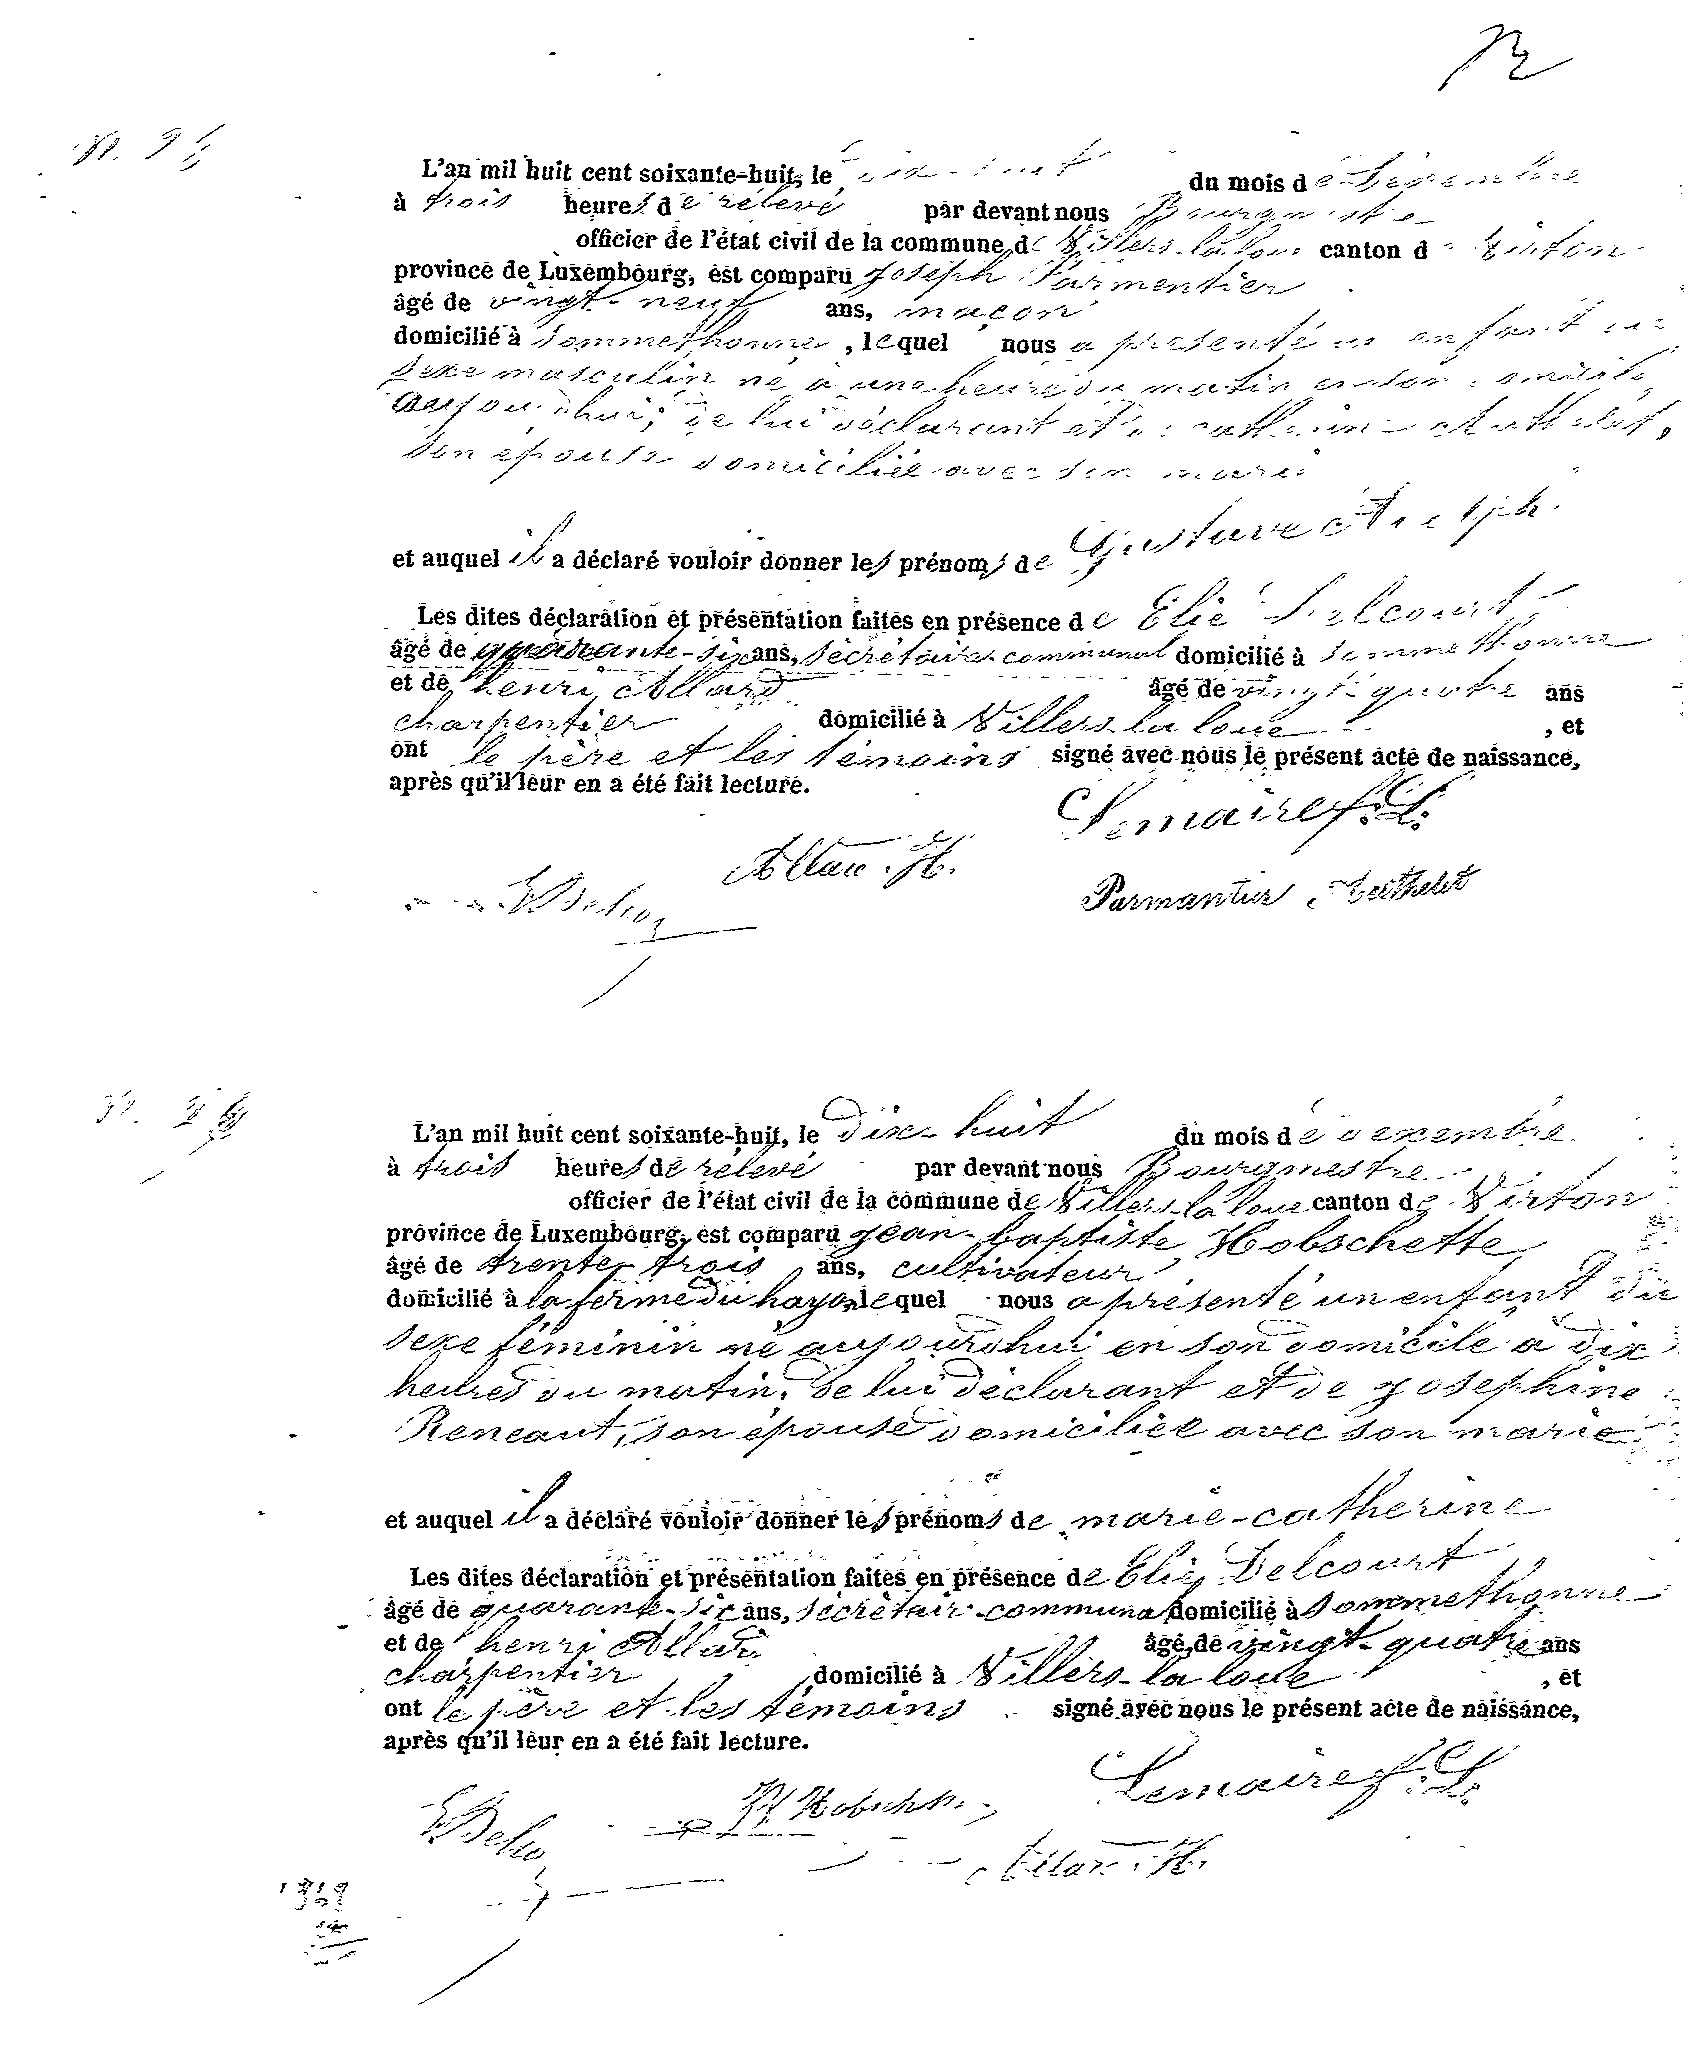 L'an mil huit cent soixante-huit, le dix-huit du mois de décembre
à trois heures de relevé par devant nous Bourgmestre
officier de l'état civil de la commune de Villers-la loue canton de Virton
province de Luxembourg, est comparu joseph Parmentier
âgé de vingt-neuf ans, maçon
domicilié à Sommethonne, lequel nous a présenté un enfant du
sexe masculin né à une heure du matin en son domicile
aujourdhui, de lui déclarant et de catherine
son épouse domiciliée avec son marie
et auquel il a déclaré vouloir donner les prénoms de Gustave
Les dites déclaration et présentation faites en présence de Elie Delcourt,
âgé de quarante-six ans, sècrètaire communal domicilié à Sommethonne
et de henri Allard âgé de vingt quatre ans
charpentier domicilié à Villers-la loue , et
ont le père et les témoins signé avec nous le présent acte de naissance,
après qu'il leur en a été fait lecture.
Lemaire f. L.
Allar. H.
Parmantier Berthelet
E Delco
L'an mil huit cent soixante-huit, le dix-huit du mois de dexembre
à trois heures de relevé par devant nous Bourgmestre
officier de l'état civil de la commune de Villers-la loue canton de Virton
province de Luxembourg, est comparu jean-baptiste Hobschette
âgé de trente trois ans, cultivateur
domicilié à la ferme du hayon lequel nous a présenté un enfant du
sexe féminin né aujourdhui en son domicile à dix
heures du matin, de lui déclarant et de josephine
Reneaut, son épouse domiciliée avec son marie
et auquel il a déclaré vouloir donner les prénoms de marie-catherine
Les dites déclaration et présentation faites en présence de Elie Delcourt
âgé de quarante-six ans, sècrètair-communal domicilié à Sommethonne
et de henri Allard âgé de vingt-quatre ans
charpentier domicilié à Villers-la loue , et
ont le père et les témoins signé avec nous le présent acte de naissance,
après qu'il leur en a été fait lecture.
Lemaire f. L.
E Delco
Allar. H.